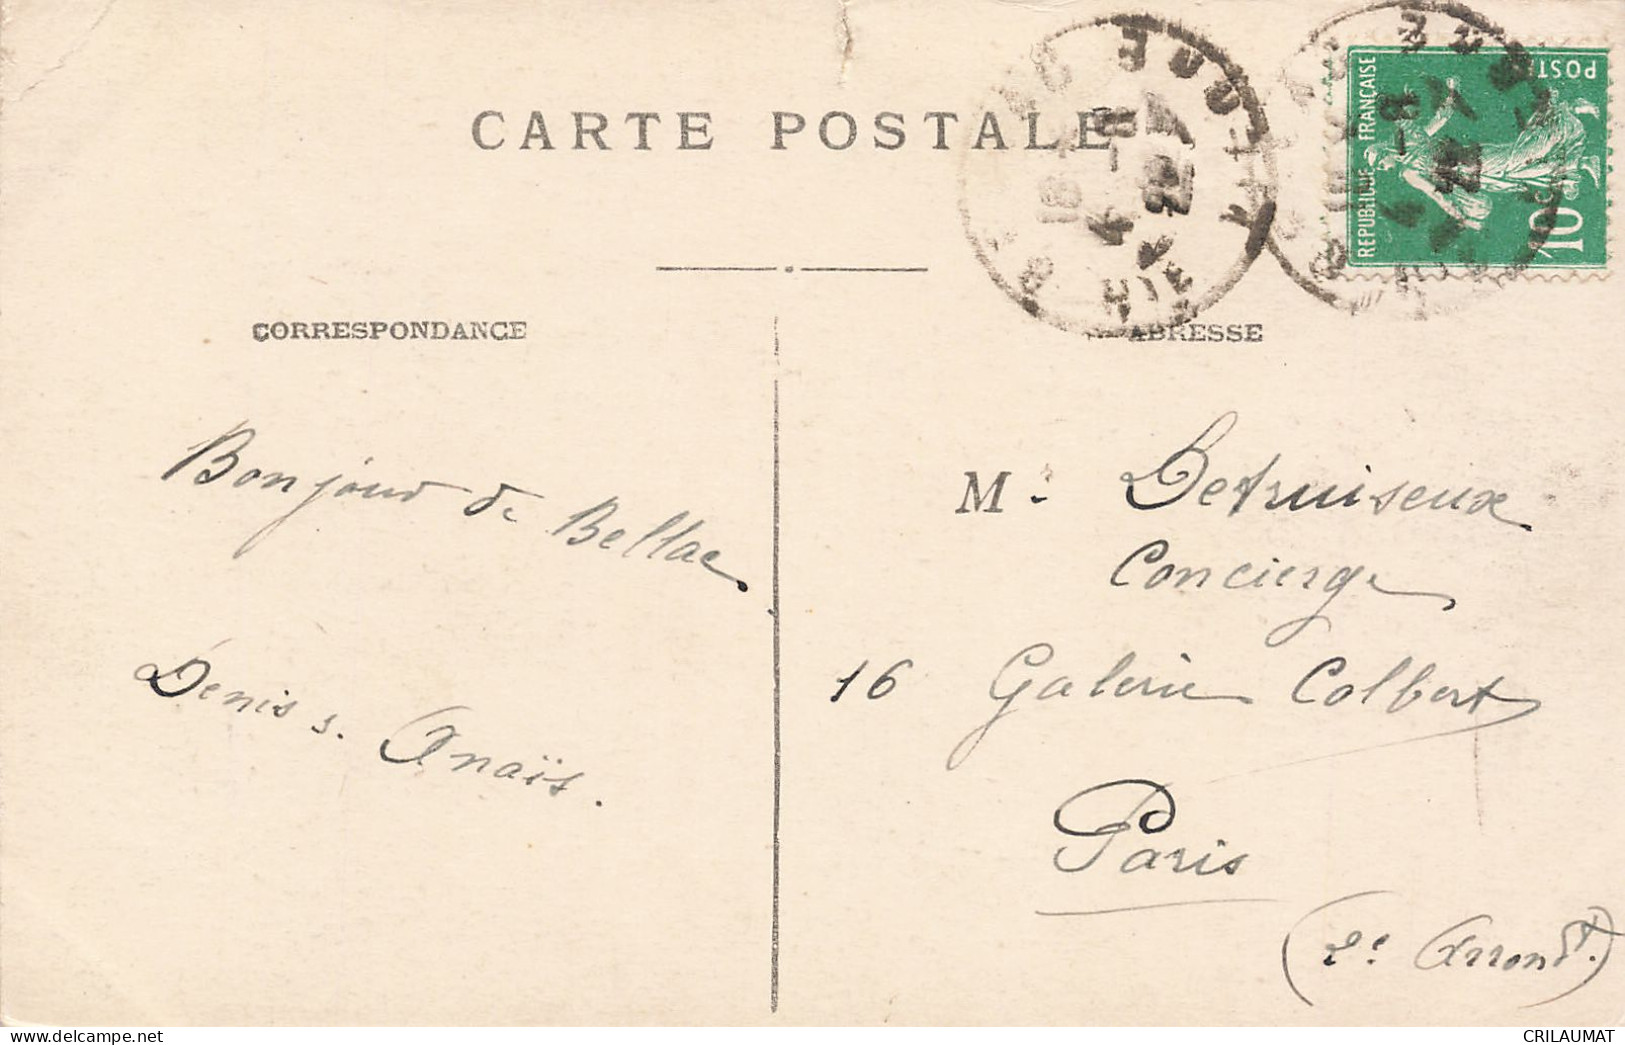 CARTE POSTALE
REPUBLIQUE FRANÇAISE
POSTES
10c
CORRESPONDANCE
ADRESSE
Bonjour de Bellac
Denis s. Anaïs.
M. Detruiseux
Concierge
16 Galerie Colbert
Paris
(2e Arrondt.)
CRILAUMAT